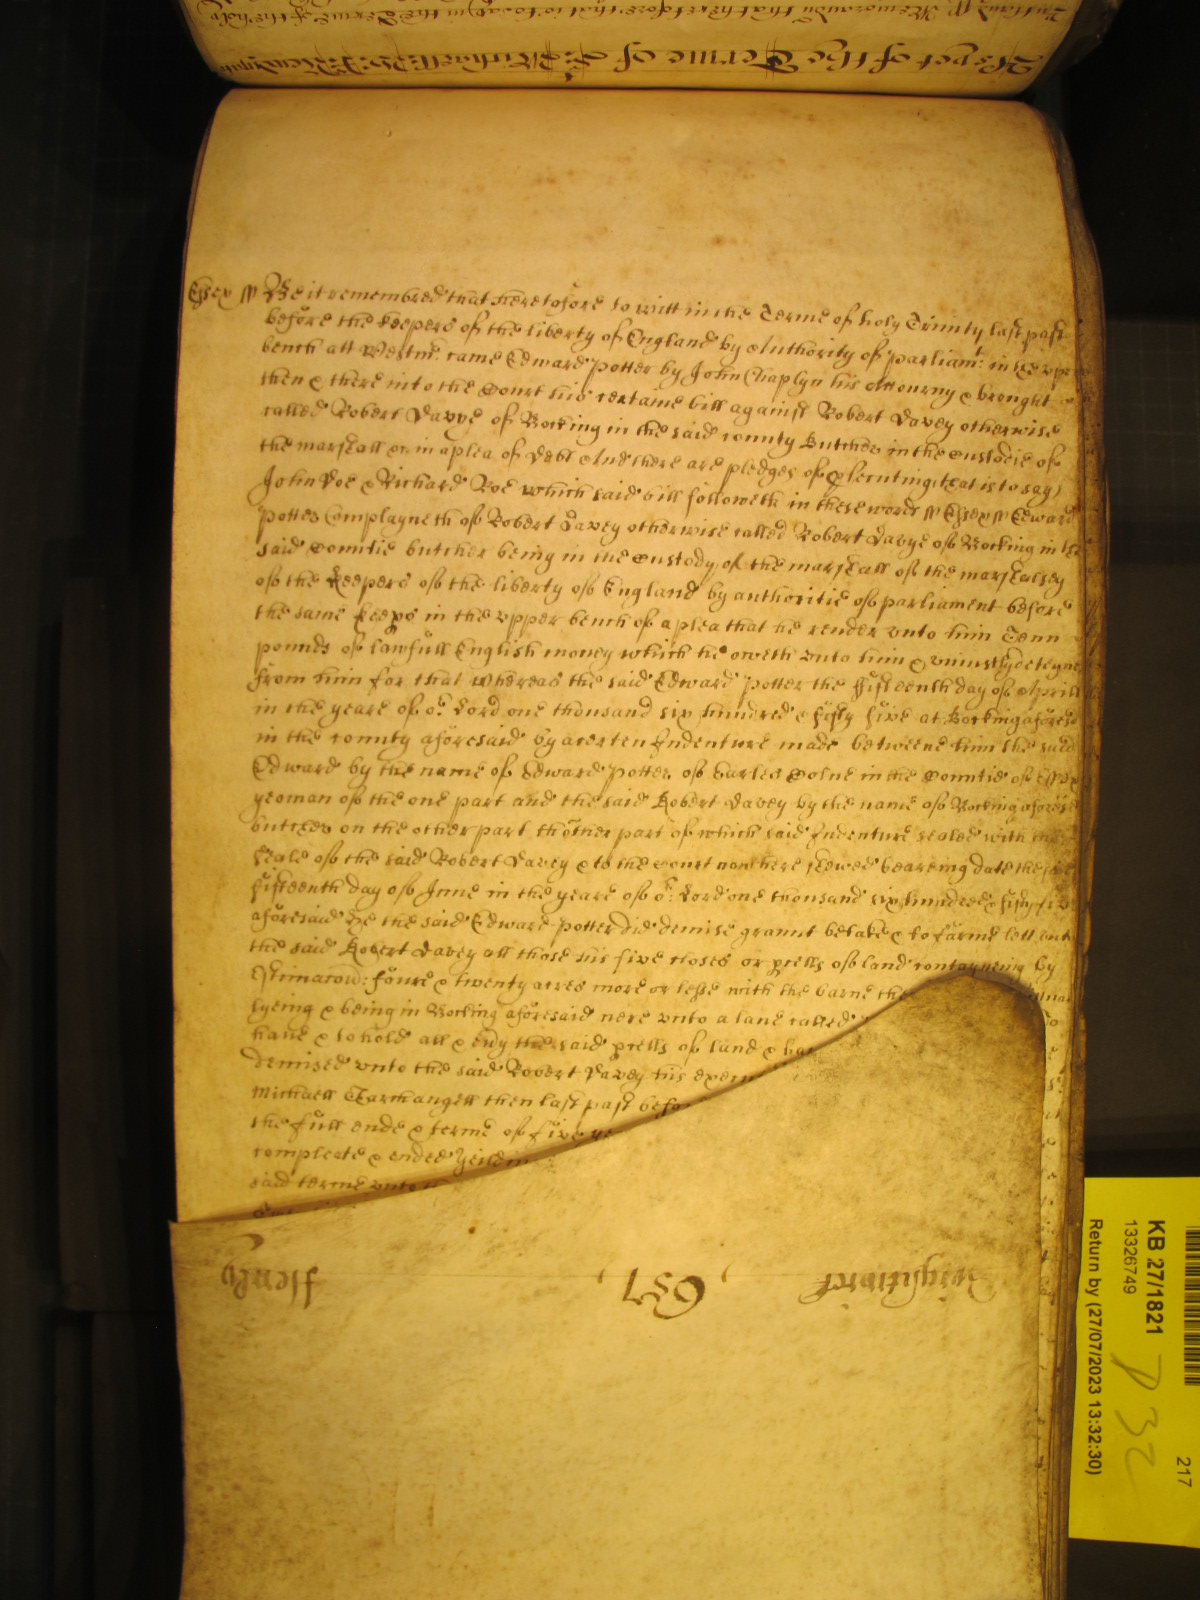 As yet of the Terme of St Michaell
Essex ss Be it remembred that heretofore to witt in the Terme of holy Trinity last past
before the keepers of the liberty of England by Authority of parliamt. in the vpper
bench att Westmr. came Edward Potter by John Chaplyn his Attourny & brought
then & there into the Court his certaine bill against Robert Davey otherwise
called Robert Davye of Bocking in the said county Butcher in the Custodie of
the marshall &c in a plea of debt And there are pledges of prosecuting (that is to say)
John Doe & Richard Roe which said bill followeth in these words ss Essex ss Edward
Potter Complayneth of Robert Davey otherwise called Robert Davye of Bocking in the
said Countie butcher being in the Custody of the marshall of the marshalsey
of the Keepers of the liberty of England by authoritie of parliament before
the same keeps in the vpper bench of a plea that he render vnto him Tenn
pounds of lawfull English money which he oweth vnto him & vniustly deteyneth
from him for that Whereas the said Edward Potter the fifteenth day of Aprill
in the yeare of or. Lord one thousand six hundred & fifty five at Bocking aforesd
in the county aforesaid by a certen Indenture made betweene him the said
Edward by the name of Edward Potter of Earles Colne in the Countie of Essex
yeoman of the one part and the said Robert Davey by the name of Bocking aforesd
butcher on the other part thother part of which said Indenture sealed with the
seale of the said Robert Davey & to the Court now here shewed beareing date the
fifteenth day of June in the yeare of or. Lord one thousand six hundred & fifty five
aforesaid He the said Edward Potter did demise graunt betake & to farme lett vnto
the said Robert Davey all those his five closes or pcells of land contayneing by
Estimacon: foure & twenty acres more or lesse with the barne the
lyeing & being in Bocking aforesaid nere vnto a lane called
haue & to hold all & eny the said pcells of land & bar
demised vnto the said Robert Davey his exem
Michaell Tharchangell then last past befo
the full ende & terme of five ye
compleate & ended Yeildin
said terme vnto
Henly 657 Wightwick
KB 27/1821
13326749
Return by (27/07/2023 13:32:30)
217
P 32